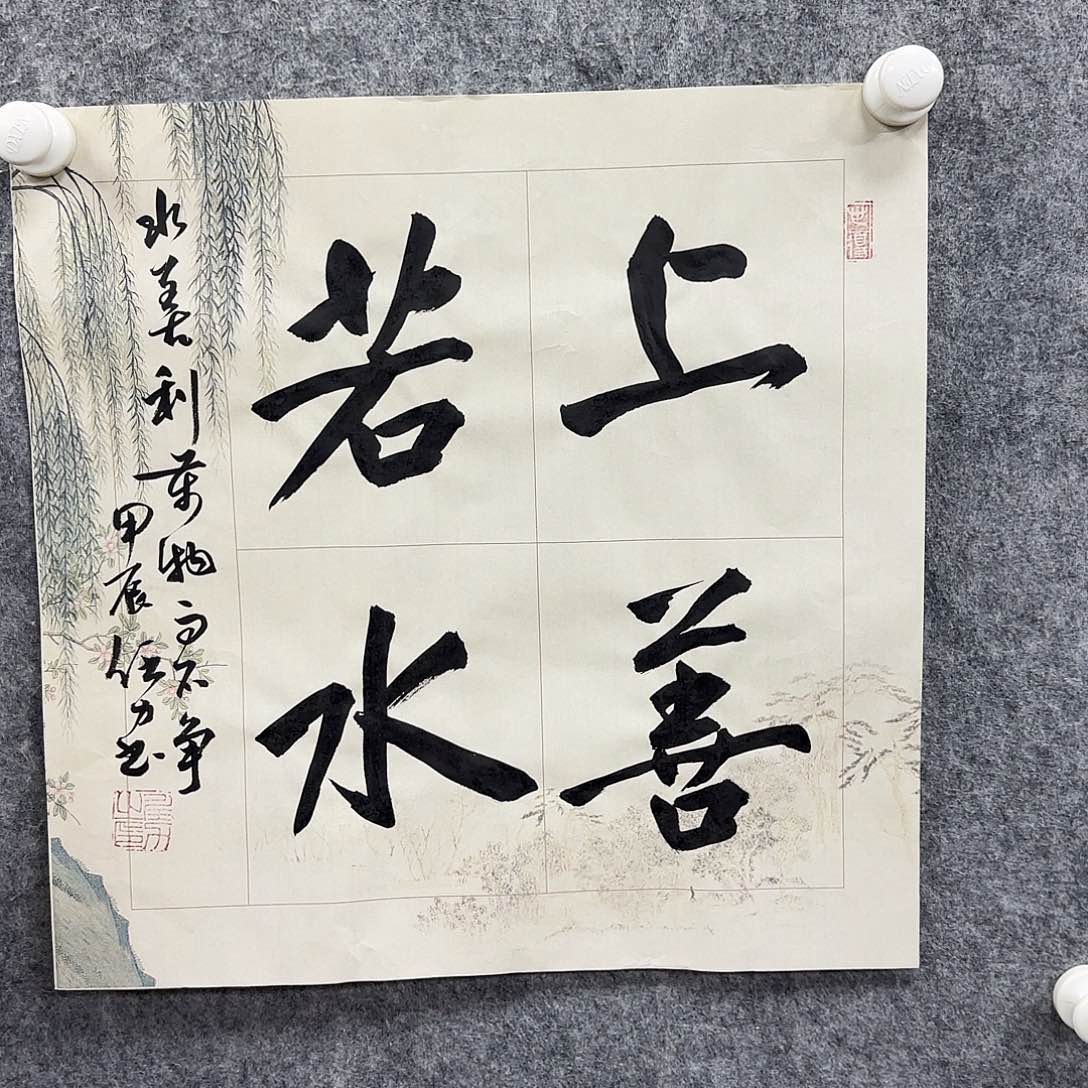 上善
若水
水善利万物而不争
甲辰任力书